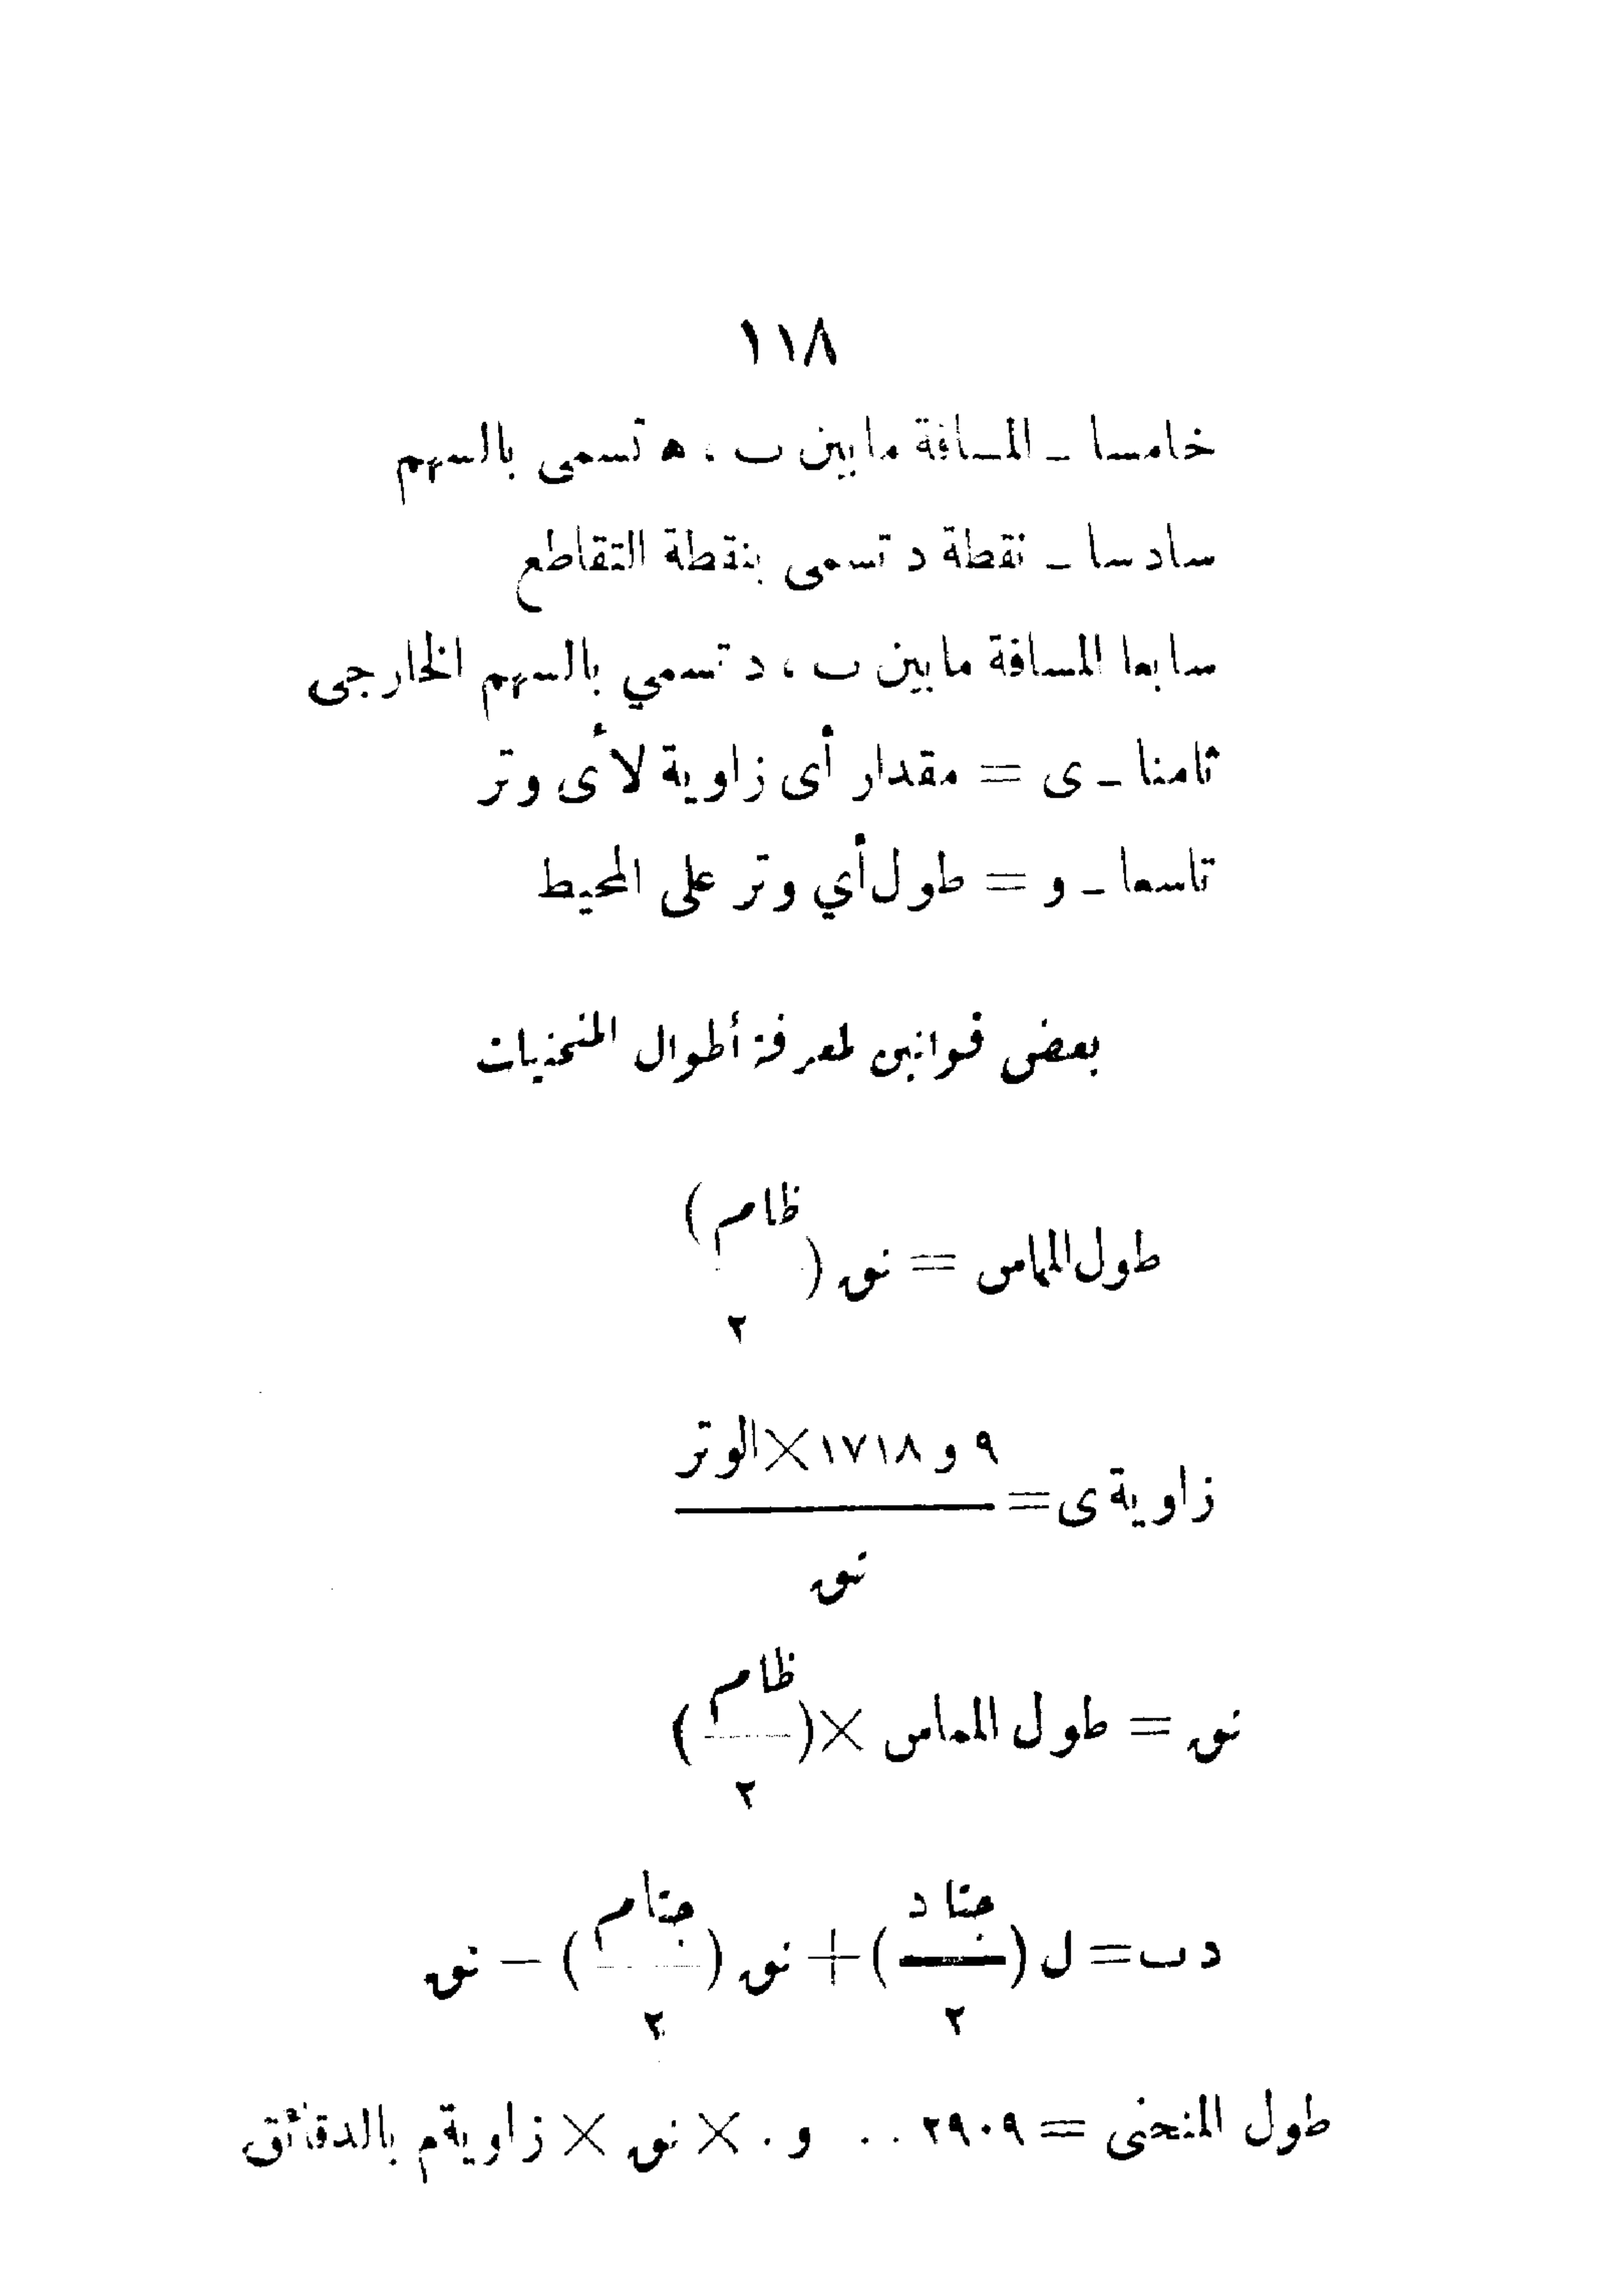 ١١٨
خامسا ـ المسافة مابين ب ، ه تسمى بالسهم
سادسا ـ نقطة د تسمى بنقطة التقاطع
سابعا المسافة مابين ب ، د تسمي بالسهم الخارجى
ثامنا ـ ى = مقدار أى زاوية لأى وتر
تاسعا ـ و = طول أي وتر على المحيط
بعض قوانين لمعرفة أطوال المنحنيات
ظام)
طول المماس = نق (
٢
٩ و ١٧١٨×الوتر
زاوية ى =
نق
ظام
نق = طول المماس ×( )
٢
حتا د جتام
د ب = ل ( ) + نق ( ) − نق
٢ ٢
طول المنحنى = ٢٩٠٩ . . و . × نق × زاوية م بالدقائق